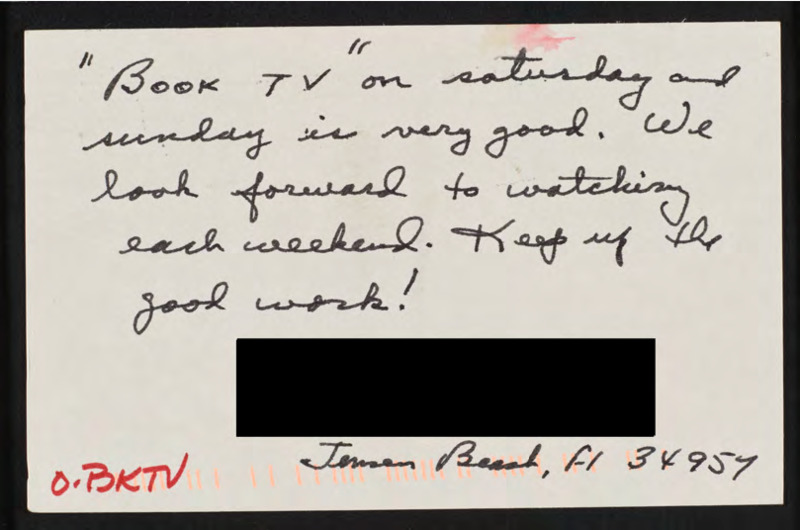 "Book TV" on saturday and
sunday is very good. We
look forward to watching
each weekend. Keep up the
good work!
Jensen Beach, Fl 34957
O-BKTV